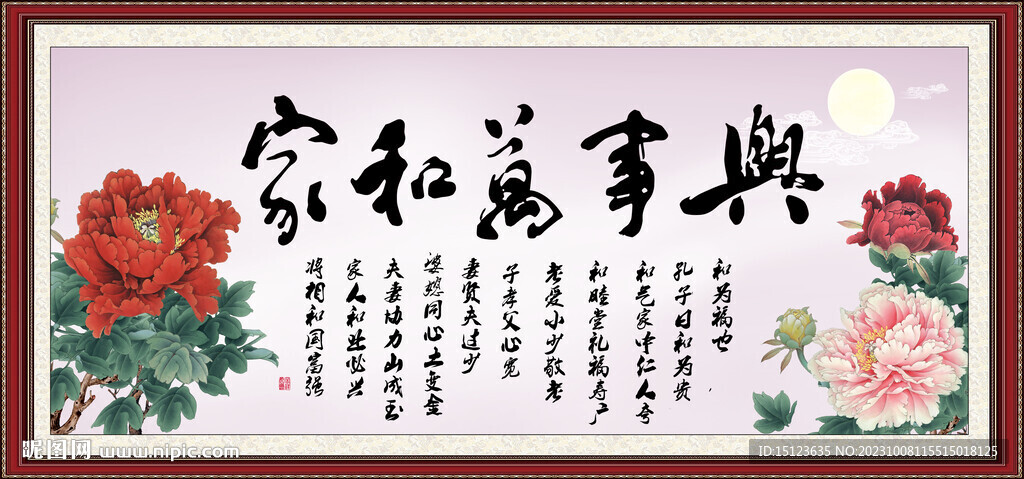 家和萬事興
和为福也
孔子曰和为贵
和气家中仁人夸
和睦堂礼福寿广
老爱小少敬老
子孝父心宽
妻贤夫过少
婆媳同心土变金
夫妻协力山成玉
家人和业必兴
将相和国富强
昵图网 www.nipic.com
ID:15123635 NO:20231008115515018125